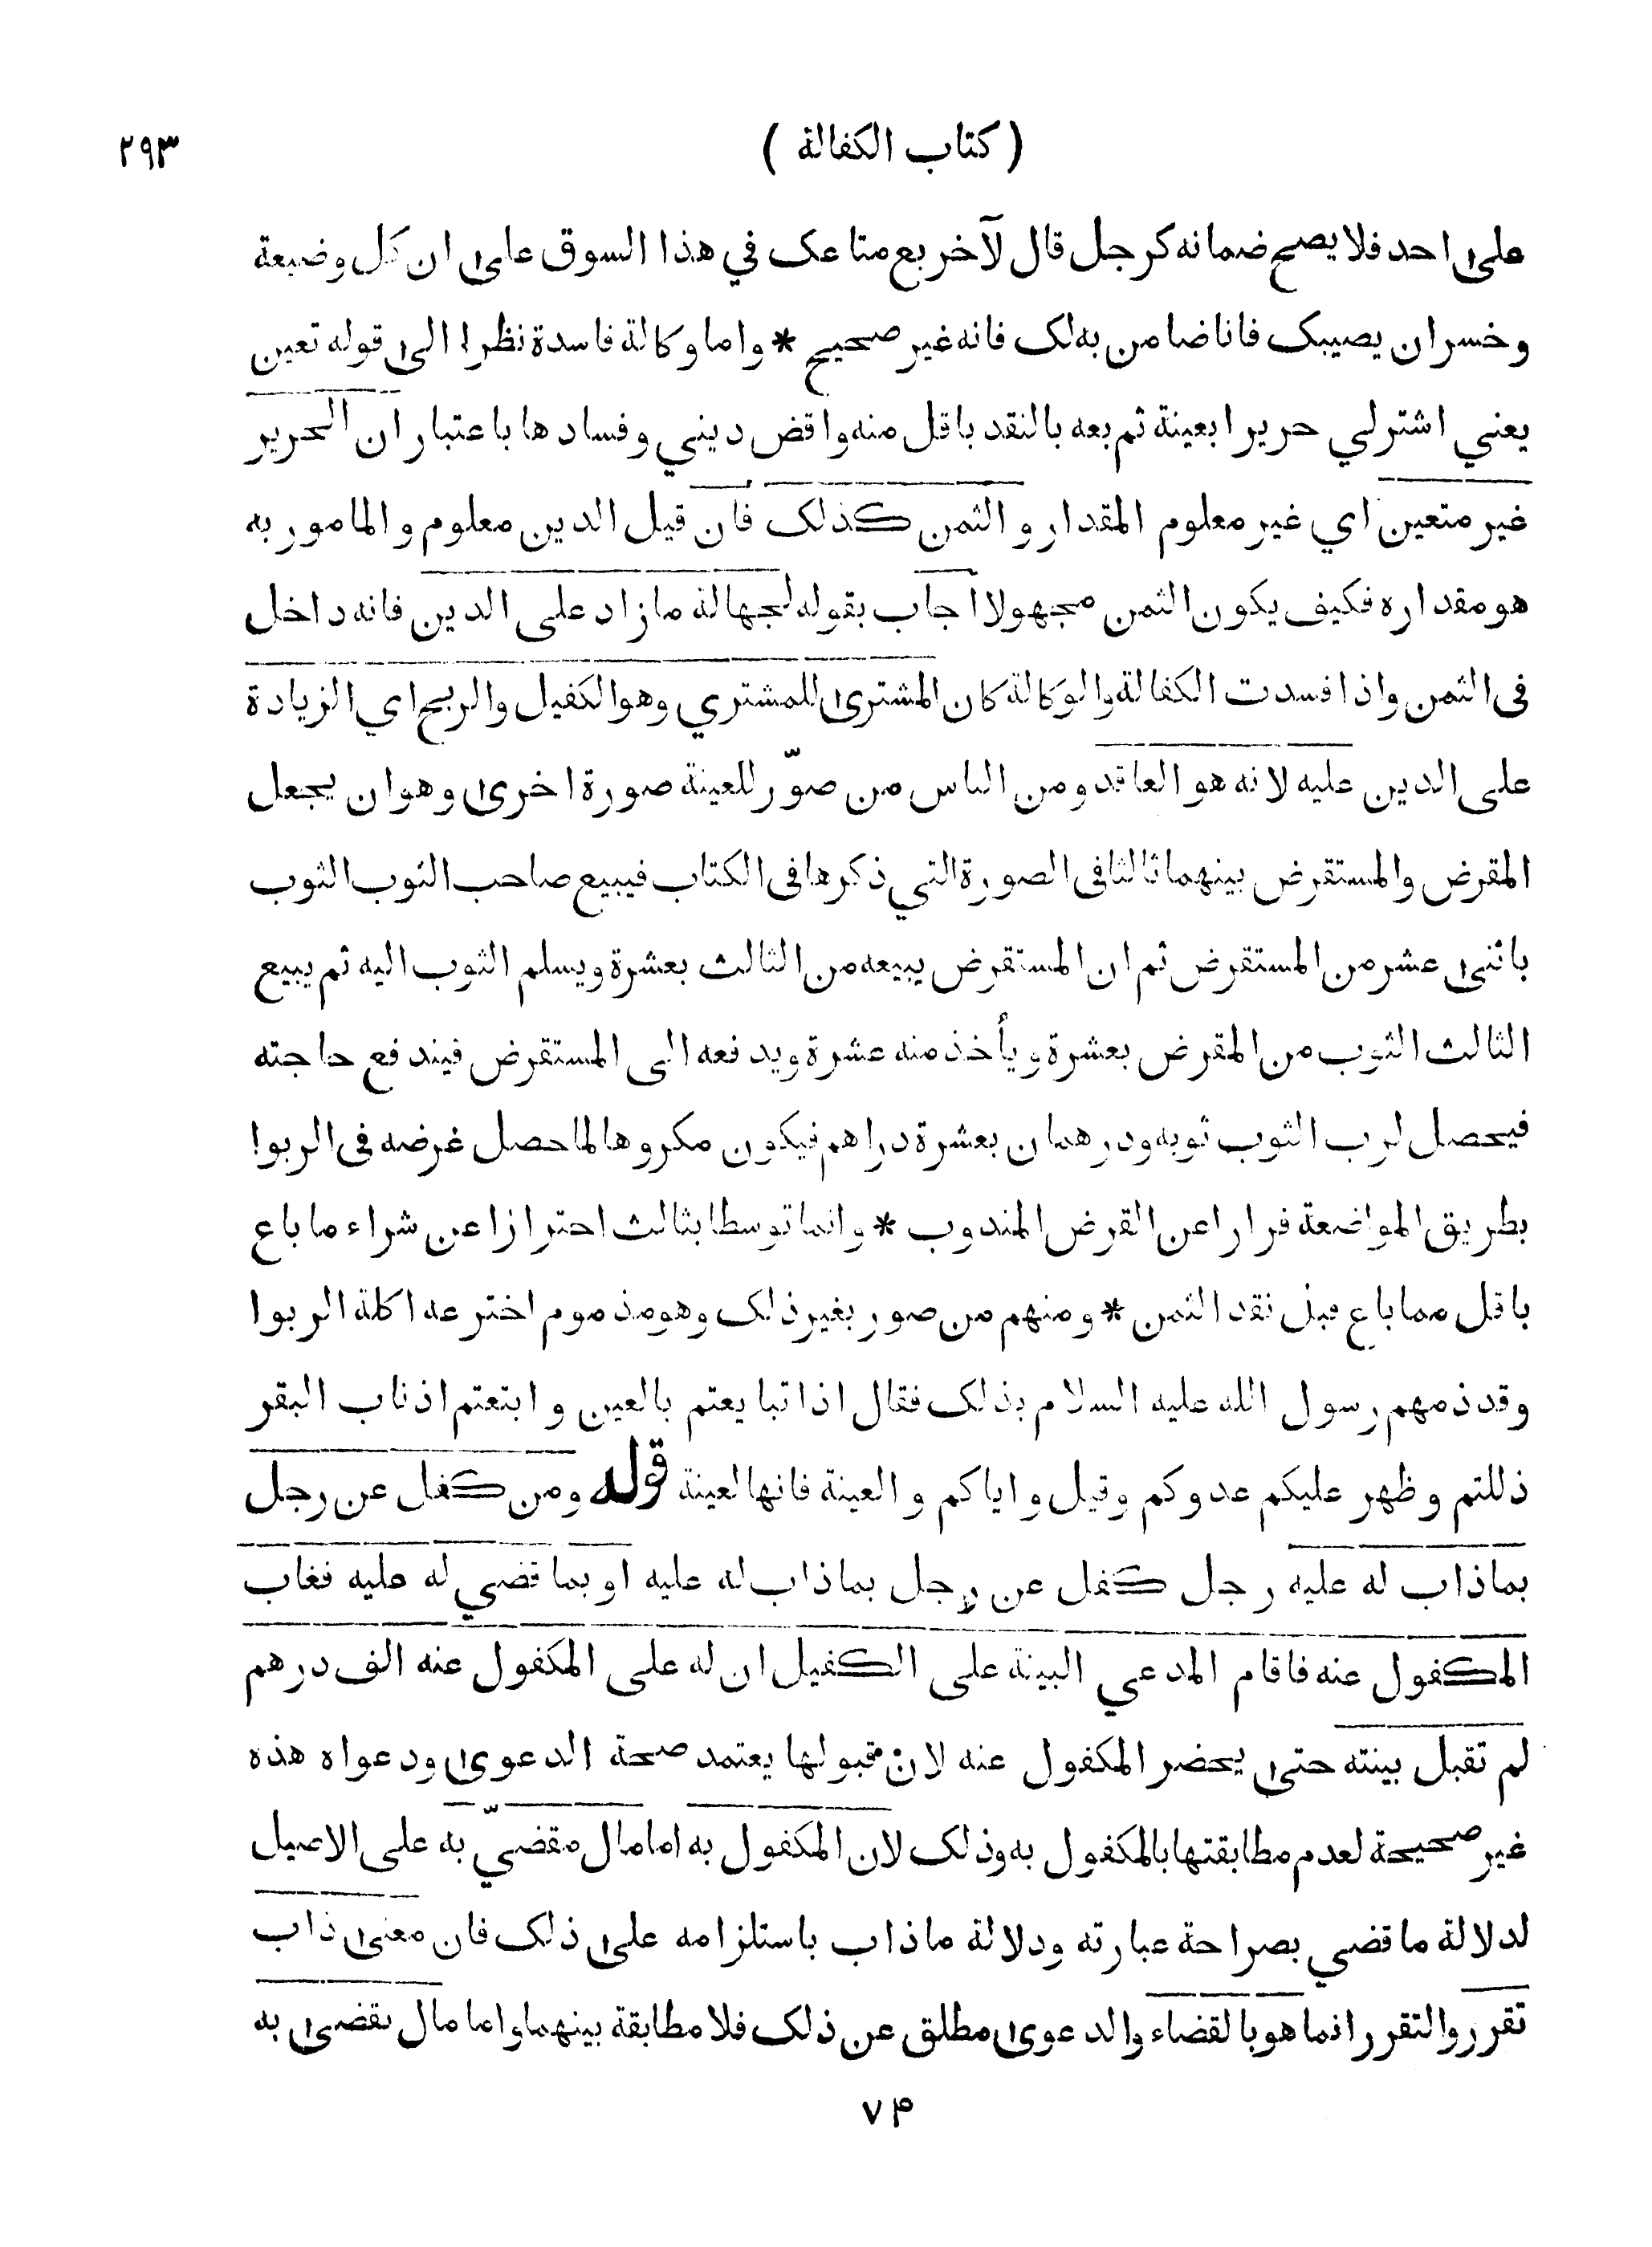 ( كتاب الكفالة ) ٢٩٣
على احد فلا يصح ضمانه كرجل قال لآخر بع متاعك في هذا السوق على ان كل وضيعة
وخسران يصيبك فانا ضامن به لك فانه غير صحيح * واما وكالة فاسدة نظرا الى قوله تعين
يعني اشتر لي حريرا بعينة ثم بعه بالنقد باقل منه واقض ديني وفسادها باعتبار ان الحرير
غير متعين اي غير معلوم المقدار والثمن كذلك فان قيل الدين معلوم والمامور به
هو مقداره فكيف يكون الثمن مجهولا اجاب بقوله لجهالة ما زاد على الدين فانه داخل
فى الثمن واذا فسدت الكفالة والوكالة كان المشترى للمشتري وهو الكفيل والربح اي الزيادة
على الدين عليه لانه هو العاقد ومن الناس من صوّر للعينة صورة اخرى وهو ان يجعل
المقرض والمستقرض بينهما ثالثا فى الصورة التي ذكرها فى الكتاب فيبيع صاحب الثوب الثوب
باثنى عشر من المستقرض ثم ان المستقرض يبيعه من الثالث بعشرة ويسلم الثوب اليه ثم يبيع
الثالث الثوب من المقرض بعشرة ويأخذ منه عشرة ويدفعه الى المستقرض فيندفع حاجته
فيحصل لرب الثوب ثوبه ودرهمان بعشرة دراهم فيكون مكروها لما حصل غرضه فى الربوا
بطريق المواضعة فرارا عن القرض المندوب * وانما توسطا بثالث احترازا عن شراء ما باع
باقل مما باع قبل نقد الثمن * ومنهم من صور بغير ذلك وهو مذموم اخترعه اكلة الربوا
وقد ذمهم رسول الله عليه السلام بذلك فقال اذا تبايعتم بالعين وابتعتم اذناب البقر
ذللتم وظهر عليكم عدوكم وقيل واياكم والعينة فانها لعينة قوله ومن كفل عن رجل
بماذاب له عليه رجل كفل عن رجل بماذاب له عليه او بما قضي له عليه فغاب
المكفول عنه فاقام المدعي البينة على الكفيل ان له على المكفول عنه الف درهم
لم تقبل بينته حتى يحضر المكفول عنه لان قبولها يعتمد صحة الدعوى ودعواه هذه
غير صحيحة لعدم مطابقتها بالمكفول به وذلك لان المكفول به اما مال مقضيّ به على الاصيل
لدلالة ما قضي بصراحة عبارته ودلالة ماذاب باستلزامه على ذلك فان معنى ذاب
تقرر والتقرر انما هو بالقضاء والدعوى مطلق عن ذلك فلا مطابقة بينهما واما مال يقضى به
٧٤